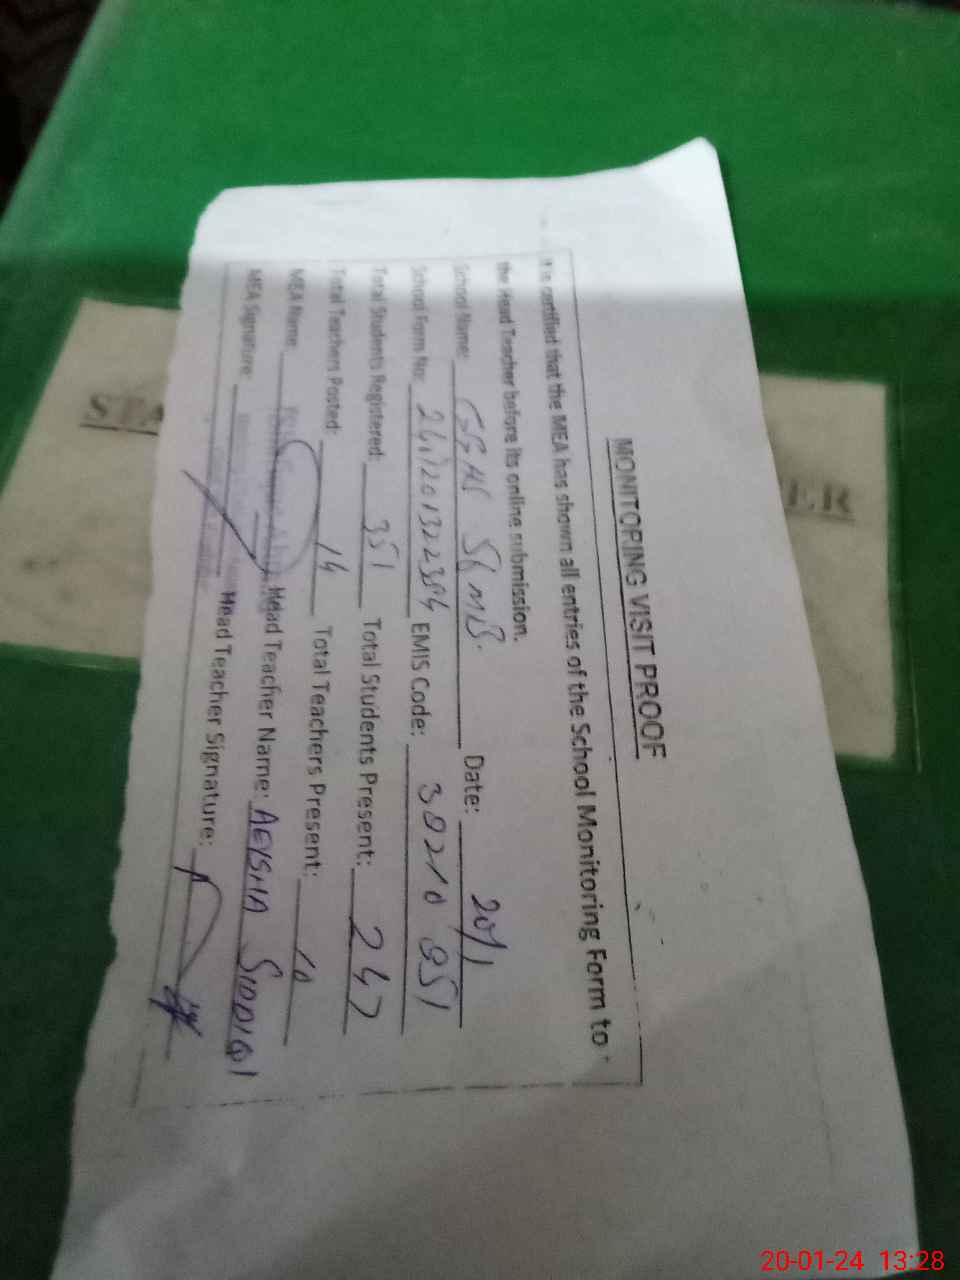 MONITORING VISIT PROOF
It is certified that the MEA has shown all entries of the School Monitoring Form to
the Head Teacher before its online submission.
School Name: GGHS 56 MB. Date: 20/1
School Form No: EMIS Code: 38210 051
Total Students Registered: 351 Total Students Present: 247
Total Teachers Posted: 14 Total Teachers Present: 10
MEA Name: Head Teacher Name: AEYSHA SIDDIQI
MEA Signature: Head Teacher Signature:
STA
ER
20-01-24 13:28